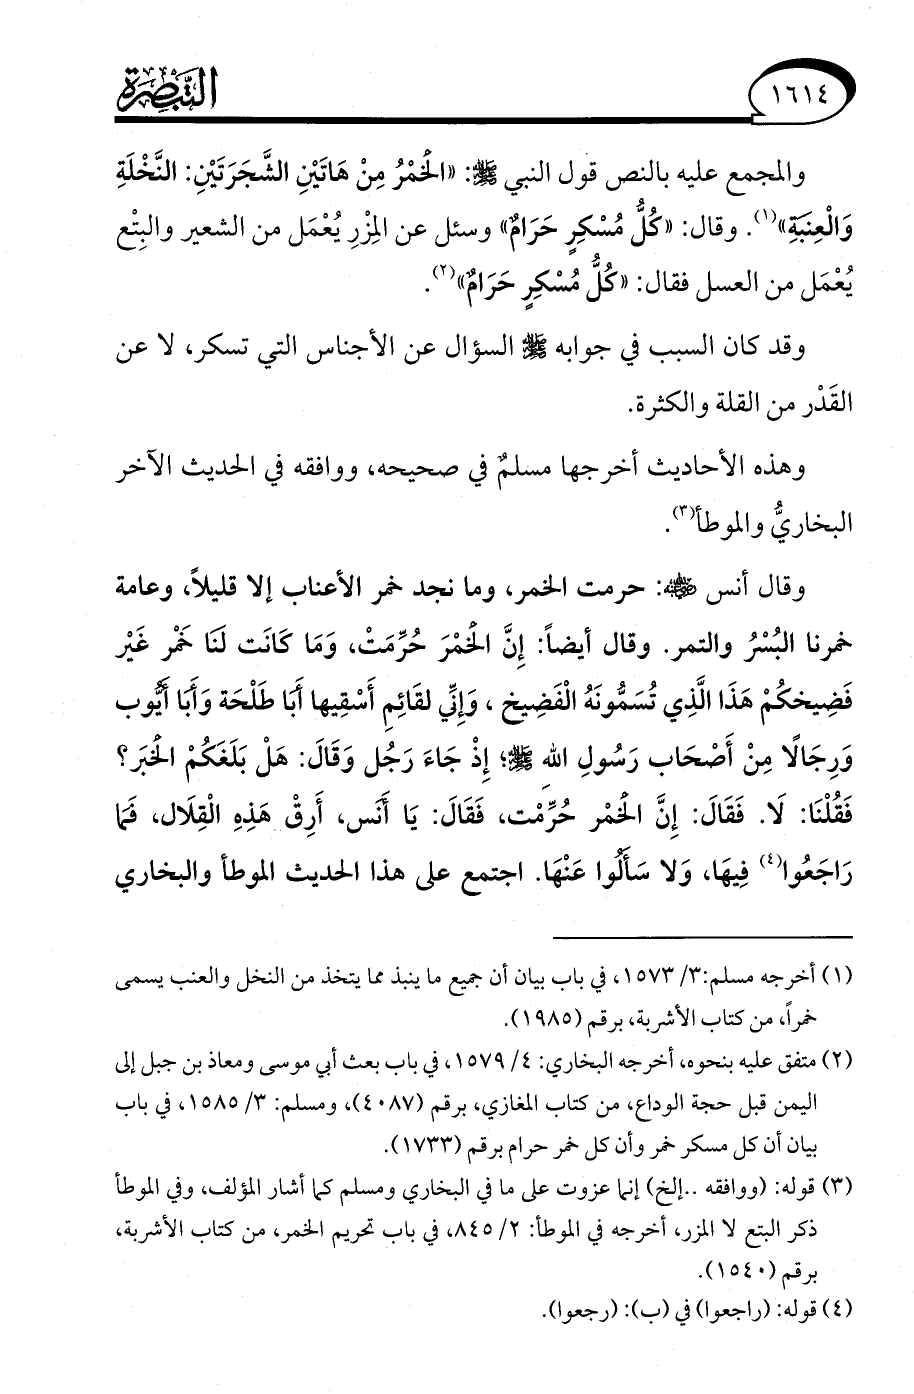 ١٦١٤
التبصرة
والمجمع عليه بالنص قول النبي ﷺ: «الخَمْرُ مِنْ هَاتَيْنِ الشَّجَرَتَيْنِ: النَّخْلَةِ
وَالْعِنَبَةِ»(١). وقال: «كُلُّ مُسْكِرٍ حَرَامٌ» وسئل عن المِزْرِ يُعْمَل من الشعير والبِتْع
يُعْمَل من العسل فقال: «كُلُّ مُسْكِرٍ حَرَامٌ»(٢).
وقد كان السبب في جوابه ﷺ السؤال عن الأجناس التي تسكر، لا عن
القَدْر من القلة والكثرة.
وهذه الأحاديث أخرجها مسلمٌ في صحيحه، ووافقه في الحديث الآخر
البخاريُّ والموطأ(٣).
وقال أنس رضي الله عنه: حرمت الخمر، وما نجد خمر الأعناب إلا قليلاً، وعامة
خمرنا البُسْرُ والتمر. وقال أيضاً: إِنَّ الخَمْرَ حُرِّمَتْ، وَمَا كَانَت لَنَا خَمْر غَيْر
فَضِيخكُمْ هَذَا الَّذِي تُسَمُّونَهُ الْفَضِيخ، وَإِنِّي لقَائِمٍ أَسْقِيها أَبَا طَلْحَة وَأَبَا أَيُّوب
وَرِجَالًا مِنْ أَصْحَاب رَسُولِ اللهِ ﷺ؛ إِذْ جَاءَ رَجُل وَقَالَ: هَلْ بَلَغَكُمْ الخَبَر؟
فَقُلْنَا: لَا. فَقَالَ: إِنَّ الخَمْر حُرِّمْت، فَقَالَ: يَا أَنَس، أَرِقْ هَذِهِ الْقِلَال، فَمَا
رَاجَعُوا(٤) فِيهَا، وَلا سَأَلُوا عَنْهَا. اجتمع على هذا الحديث الموطأ والبخاري
(١) أخرجه مسلم:٣/ ١٥٧٣، في باب بيان أن جميع ما ينبذ مما يتخذ من النخل والعنب يسمى
خمراً، من كتاب الأشربة، برقم (١٩٨٥).
(٢) متفق عليه بنحوه، أخرجه البخاري: ٤/ ١٥٧٩، في باب بعث أبي موسى ومعاذ بن جبل إلى
اليمن قبل حجة الوداع، من كتاب المغازي، برقم (٤٠٨٧)، ومسلم: ٣/ ١٥٨٥، في باب
بيان أن كل مسكر خمر وأن كل خمر حرام برقم (١٧٣٣).
(٣) قوله: (ووافقه ..إلخ) إنما عزوت على ما في البخاري ومسلم كما أشار المؤلف، وفي الموطأ
ذكر البتع لا المزر، أخرجه في الموطأ: ٢/ ٨٤٥، في باب تحريم الخمر، من كتاب الأشربة،
برقم (١٥٤٠).
(٤) قوله: (راجعوا) في (ب): (رجعوا).